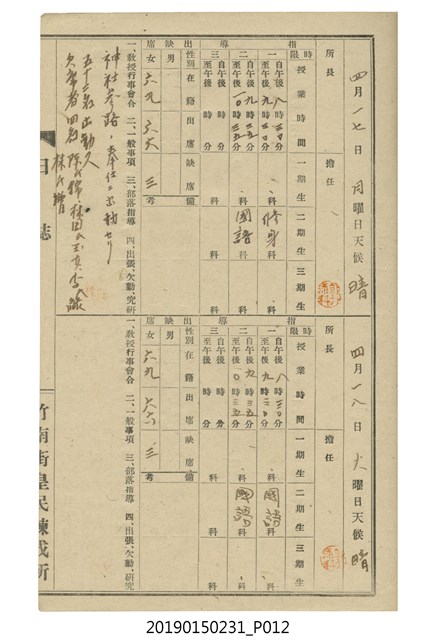 四月一七日 月曜日天候 晴
所長 擔任
指導
時限 授業時間 一期生 二期生 三期生
一 自午後八時三〇分 至午後九時二〇分 科 修身 科 科
二 自午後九時三五分 至午後一〇時三五分 科 國語 科 科
三 自午後 時 分 至午後 時 分 科 科 科
出缺席
性別 在籍 出席 缺席 備考
男
女 六九 六六 三
一、教授行事會合 二、一般事項 三、部落指導 四、出張、欠勤、究研
神社参路、奉仕
五十二名出動
欠席者四名
日誌
四月一八日 火曜日天候 晴
所長 擔任
指導
時限 授業時間 一期生 二期生 三期生
一 自午後八時三〇分 至午後九時二〇分 科 國語 科 科
二 自午後九時三五分 至午後一〇時三五分 科 國語 科 科
三 自午後 時 分 至午後 時 分 科 科 科
出缺席
性別 在籍 出席 缺席 備考
男
女 六九 六六 三
一、教授行事會合 二、一般事項 三、部落指導 四、出張、欠勤、究研
竹南街皇民鍊成所
20190150231_P012